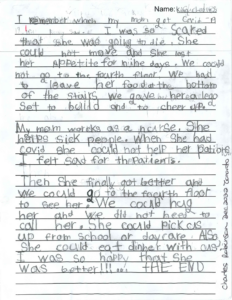 Name:
I remember when my mom got Covid
I was so scared
that she was going to die. She
could not move and She lost
her appetite for nine days. We could
not go to the fourth floor We had
to leave her food at the bottom
of the stairs We gave her a lego
Set to build and to cheer up
My mom works as a nurse. She
helps sick people. When she had
Covid she could not help her patients
I felt sad for the Patients.
Then She finally got better and
We could go to the fourth floor
to see her. We could hug
her and we did not need to
call her. She could pick us
up from school or daycare. Also
She could eat dinner with us.
I was so happy that She
was better!!! THE END
Charles Dec. 2022